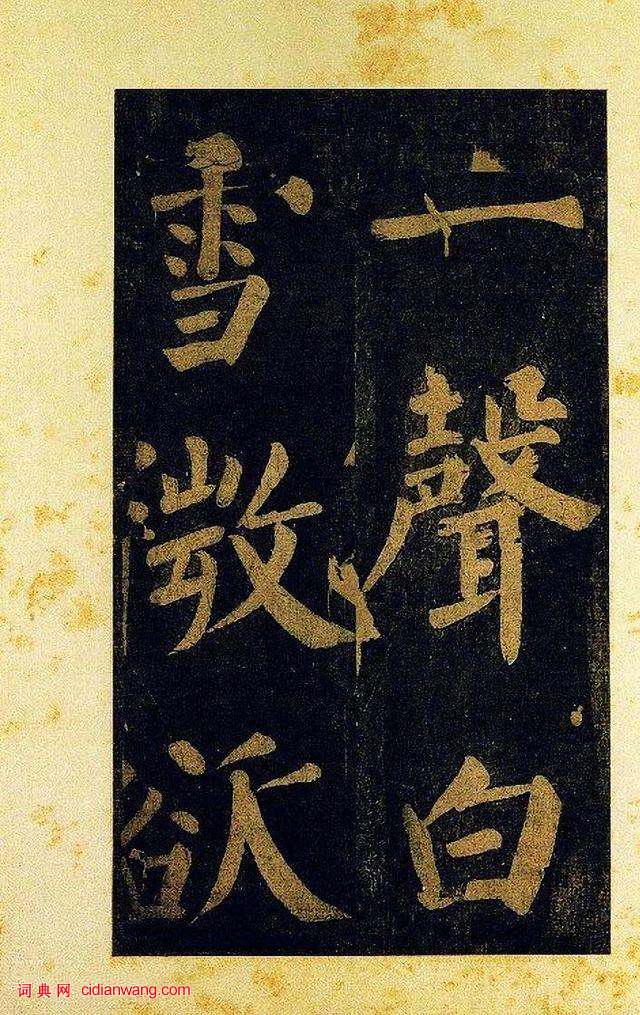 一聲白
雪微欲
词典网 cidianwang.com